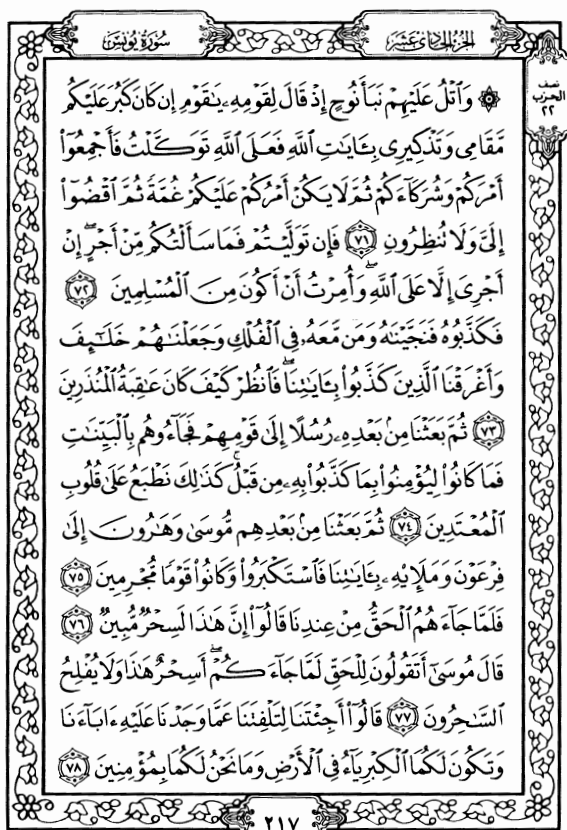 سُورَةُ يُونُسَ
الجُزْءُ الحَادِي عَشَرَ
نصف
الحزب
٢٢
۞ وَٱتۡلُ عَلَيۡهِمۡ نَبَأَ نُوحٍ إِذۡ قَالَ لِقَوۡمِهِۦ يَٰقَوۡمِ إِن كَانَ كَبُرَ عَلَيۡكُم
مَّقَامِي وَتَذۡكِيرِي بِـَٔايَٰتِ ٱللَّهِ فَعَلَى ٱللَّهِ تَوَكَّلۡتُ فَأَجۡمِعُوٓاْ
أَمۡرَكُمۡ وَشُرَكَآءَكُمۡ ثُمَّ لَا يَكُنۡ أَمۡرُكُمۡ عَلَيۡكُمۡ غُمَّةٗ ثُمَّ ٱقۡضُوٓاْ
إِلَيَّ وَلَا تُنظِرُونِ ٧١ فَإِن تَوَلَّيۡتُمۡ فَمَا سَأَلۡتُكُم مِّنۡ أَجۡرٍۖ إِنۡ
أَجۡرِيَ إِلَّا عَلَى ٱللَّهِۖ وَأُمِرۡتُ أَنۡ أَكُونَ مِنَ ٱلۡمُسۡلِمِينَ ٧٢
فَكَذَّبُوهُ فَنَجَّيۡنَٰهُ وَمَن مَّعَهُۥ فِي ٱلۡفُلۡكِ وَجَعَلۡنَٰهُمۡ خَلَٰٓئِفَ
وَأَغۡرَقۡنَا ٱلَّذِينَ كَذَّبُواْ بِـَٔايَٰتِنَاۖ فَٱنظُرۡ كَيۡفَ كَانَ عَٰقِبَةُ ٱلۡمُنذَرِينَ
٧٣ ثُمَّ بَعَثۡنَا مِنۢ بَعۡدِهِۦ رُسُلًا إِلَىٰ قَوۡمِهِمۡ فَجَآءُوهُم بِٱلۡبَيِّنَٰتِ
فَمَا كَانُواْ لِيُؤۡمِنُواْ بِمَا كَذَّبُواْ بِهِۦ مِن قَبۡلُۚ كَذَٰلِكَ نَطۡبَعُ عَلَىٰ قُلُوبِ
ٱلۡمُعۡتَدِينَ ٧٤ ثُمَّ بَعَثۡنَا مِنۢ بَعۡدِهِم مُّوسَىٰ وَهَٰرُونَ إِلَىٰ
فِرۡعَوۡنَ وَمَلَإِيْهِۦ بِـَٔايَٰتِنَا فَٱسۡتَكۡبَرُواْ وَكَانُواْ قَوۡمٗا مُّجۡرِمِينَ ٧٥
فَلَمَّا جَآءَهُمُ ٱلۡحَقُّ مِنۡ عِندِنَا قَالُوٓاْ إِنَّ هَٰذَا لَسِحۡرٞ مُّبِينٞ ٧٦
قَالَ مُوسَىٰٓ أَتَقُولُونَ لِلۡحَقِّ لَمَّا جَآءَكُمۡۖ أَسِحۡرٌ هَٰذَا وَلَا يُفۡلِحُ
ٱلسَّٰحِرُونَ ٧٧ قَالُوٓاْ أَجِئۡتَنَا لِتَلۡفِتَنَا عَمَّا وَجَدۡنَا عَلَيۡهِ ءَابَآءَنَا
وَتَكُونَ لَكُمَا ٱلۡكِبۡرِيَآءُ فِي ٱلۡأَرۡضِ وَمَا نَحۡنُ لَكُمَا بِمُؤۡمِنِينَ ٧٨
٢١٧